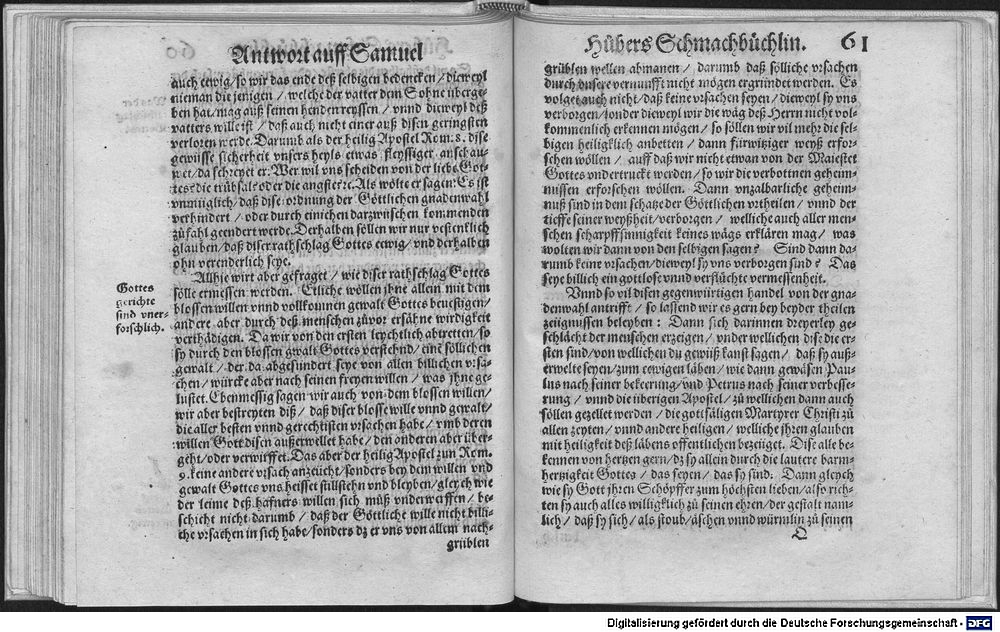 Antwort auff Samuel
auch eewig / so wir das ende deß selbigen bedencken / dieweyl
nieman die jenigen / welche der vatter dem Sohne überge-
ben hat / mag auß seinen henden reyssen / vnnd dieweyl deß
vatters wille ist / daß auch nicht einer auß disen geringsten
verloren werde. Darumb als der heilig Apostel Rom: 8. dise
gewisse sicherheit vnsers heyls etwas fleyssiger anschau-
wet / da schreyet er: Wer wil vns scheiden von der liebe Got-
tes? die trübsal? oder die angst? etc. Als wölte er sagen: Es ist
vnmüglich / daß dise ordnung der Göttlichen gnadenwahl
verhindert / oder durch einichen darzwischen kommenden
zůfahl geendert werde. Derhalben söllen wir nur vestenklich
glauben / daß diser rathschlag Gottes eewig / vnd derhalben
ohn verenderlich seye.
Allhie wirt aber gefraget / wie diser rathschlag Gottes
sölle ermessen werden. Etliche wöllen jhne allein mit dem
blossen willen vnnd vollkom̃nen gewalt Gottes beuestigen /
andere aber durch deß menschen zůvor ersähne wirdigkeit
verthädigen. Da wir von den ersten leychtlich abtretten / so
sy durch den blossen gwalt Gottes verstehnd / einẽ söllichen
gewalt / der da abgesündert seye von allen billichen vrsa-
chen / würcke aber nach seinen freyen willen / was jhne ge-
lustet. Ebenmessig sagen wir auch von dem blossen willen /
wir aber bestreyten diß / daß diser blosse wille vnnd gewalt /
die aller besten vnnd gerechtisten vrsachen habe / vmb deren
willen Gott disen außerwellet habe / den anderen aber über-
geht / oder verwirfft. Das aber der heilig Apostel zun Rom.
9. keine andere vrsach anzeücht / sonders bey dem willen vnd
gewalt Gottes vns heisset stillstehn vnd bleyben / gleych wie
der leime deß hafners willen sich můß vnderwaffen / be-
schicht nicht darumb / daß der Göttliche wille nicht billi-
che vrsachen in sich habe / sonders dz er vns von allem nach-
grüblen
Gottes
gerichte
sind vner-
forschlich.
Hůbers Schmachbüchlin. 61
grüblen wellen abmanen / darumb daß sölliche vrsachen
durch vnsere vernunfft nicht mögen ergründet werden. Es
volget auch nicht / daß keine vrsachen seyen / dieweyl sy vns
verborgen / sonder dieweyl wir die wäg deß Herrn nicht vol-
kommenlich erkennen mögen / so söllen wir vil mehr die sel-
bigen heiligklich anbetten / dann fürwitziger weyß erfor-
schen wöllen / auff daß wir nicht etwan von der Maiestet
Gottes vndertruckt werden / so wir die verbottnen geheim-
nussen erforschen wöllen. Dann vnzalbarliche geheim-
nuß sind in dem schatze der Göttlichen vrtheilen / vnnd der
tieffe seiner weyßheit / verborgen / welliche auch aller men-
schen scharpffsinnigkeit keines wägs erklären mag / was
wolten wir dann von den selbigen sagen? Sind dann da-
rumb keine vrsachen / dieweyl sy vns verborgen sind? Das
seye billich ein gottlose vnnd verflůchte vermessenheit.
Vnnd so vil disen gegenwürtigen handel von der gna-
denwahl antrifft / so lassend wir es gern bey beyder theilen
zeügnissen beleyben: Dann sich darinnen dreyerley ge-
schlächt der menschen erzeigen / vnder wellichen dise die er-
sten sind / von wellichen du gewüß kanst sagen / daß sy auß-
erwelte seyen / zum eewigen läben / wie dann gewäsen Pau-
lus nach seiner bekeerung / vnd Petrus nach seiner verbesse-
rung / vnnd die überigen Apostel / zů wellichen dann auch
söllen gezellet werden / die gottsäligen Martyrer Christi zů
allen zeyten / vnnd andere heiligen / welliche jhren glauben
mit heiligkeit deß läbens offentlichen bezeüget. Dise alle be-
kennen von hertzen gern / dz sy allein durch die lautere barm-
hertzigkeit Gottes / das seyen / das sy sind: Dann gleych
wie sy Gott jhren Schöpffer zum höchsten lieben / also rich-
ten sy auch alles willigklich zů seinen ehren / der gestalt nam-
lich / daß sy sich / als stoub / äschen vnnd würmlin zů seinen
Q
Digitalisierung gefördert durch die Deutsche Forschungsgemeinschaft - DFG